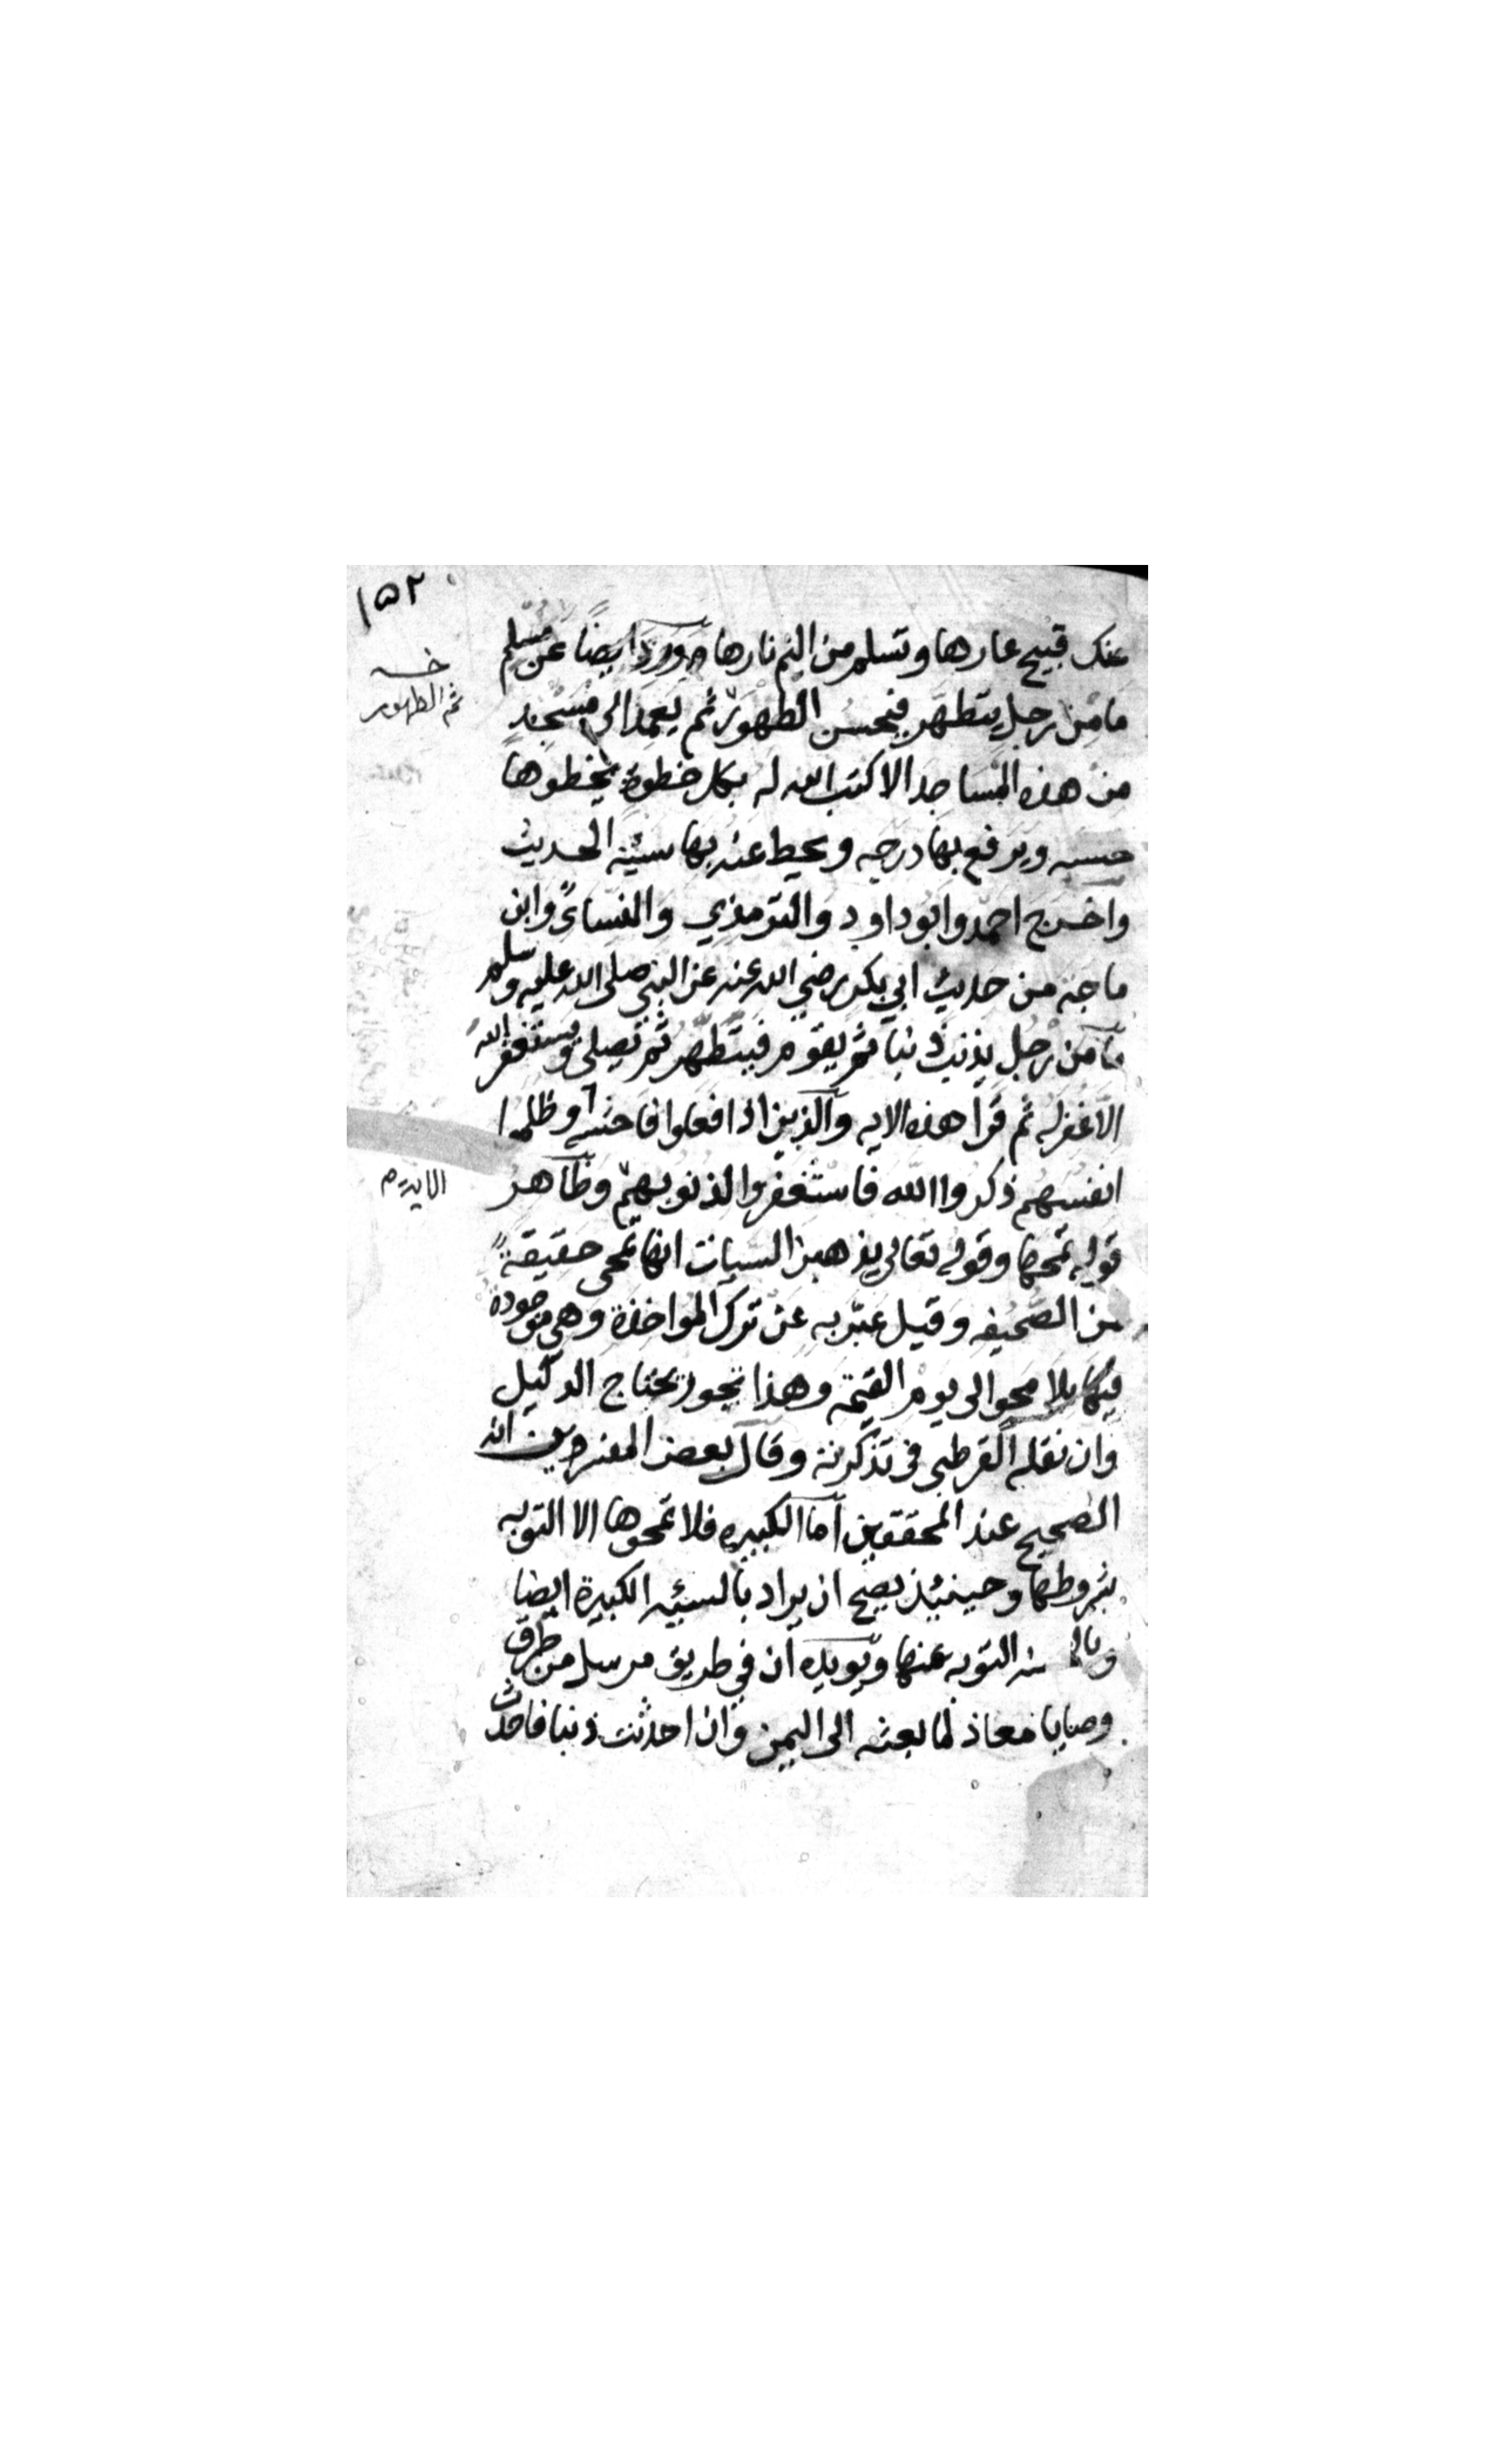 ١٥٢
عنك قبيح عارها وتسلم من اليم نارها وورد ايضا عن مسلم
خـــه
ثم الطهور
ما من رجل يتطهر فيحسن الطهور ثم يعمد الى مسجد
من هذه المساجد الا كتب الله له بكل خطوة يخطوها
حسنه ويرفع بها درجه ويحط عنه بها سئيه الحديث
واخرج احمد وابو داود والترمذي والنساءي وابن
ماجه من حديث ابي بكر رضي الله عنه عن النبي صلى الله عليه وسلم
ما من رجل يذنب ذنبا ثم يقوم فيتطهر ثم يصلي ويستغفر الله
الا غفر له ثم قرا هذه الايه والذين اذا فعلوا فاحشه او ظلموا
انفسهم ذكروا الله فاستغفروا لذنوبهم وظاهر
الايه م
قوله تمحها وقوله تعالى يذهبن السيات انها تمحى حقيقة
من الصحيفه وقيل عبر به عن ترك المواخذة وهي موجودة
فيها بلا محو الى يوم القيمة وهذا تجوز يحتاج الدليل
وان نقله القرطبي في تذكرته وقال بعض المفسرين انه
الصحيح عند المحققين اما الكبيره فلا تمحوها الا التوبه
بشروطها وحينيذ يصح ان يراد بالسئيه الكبيرة ايضا
التوبه عنها ويويده ان في طريق مرسل من طرق
وصايا معاذ لما بعثه الى اليمن وان احدثت ذنبا فاحدث